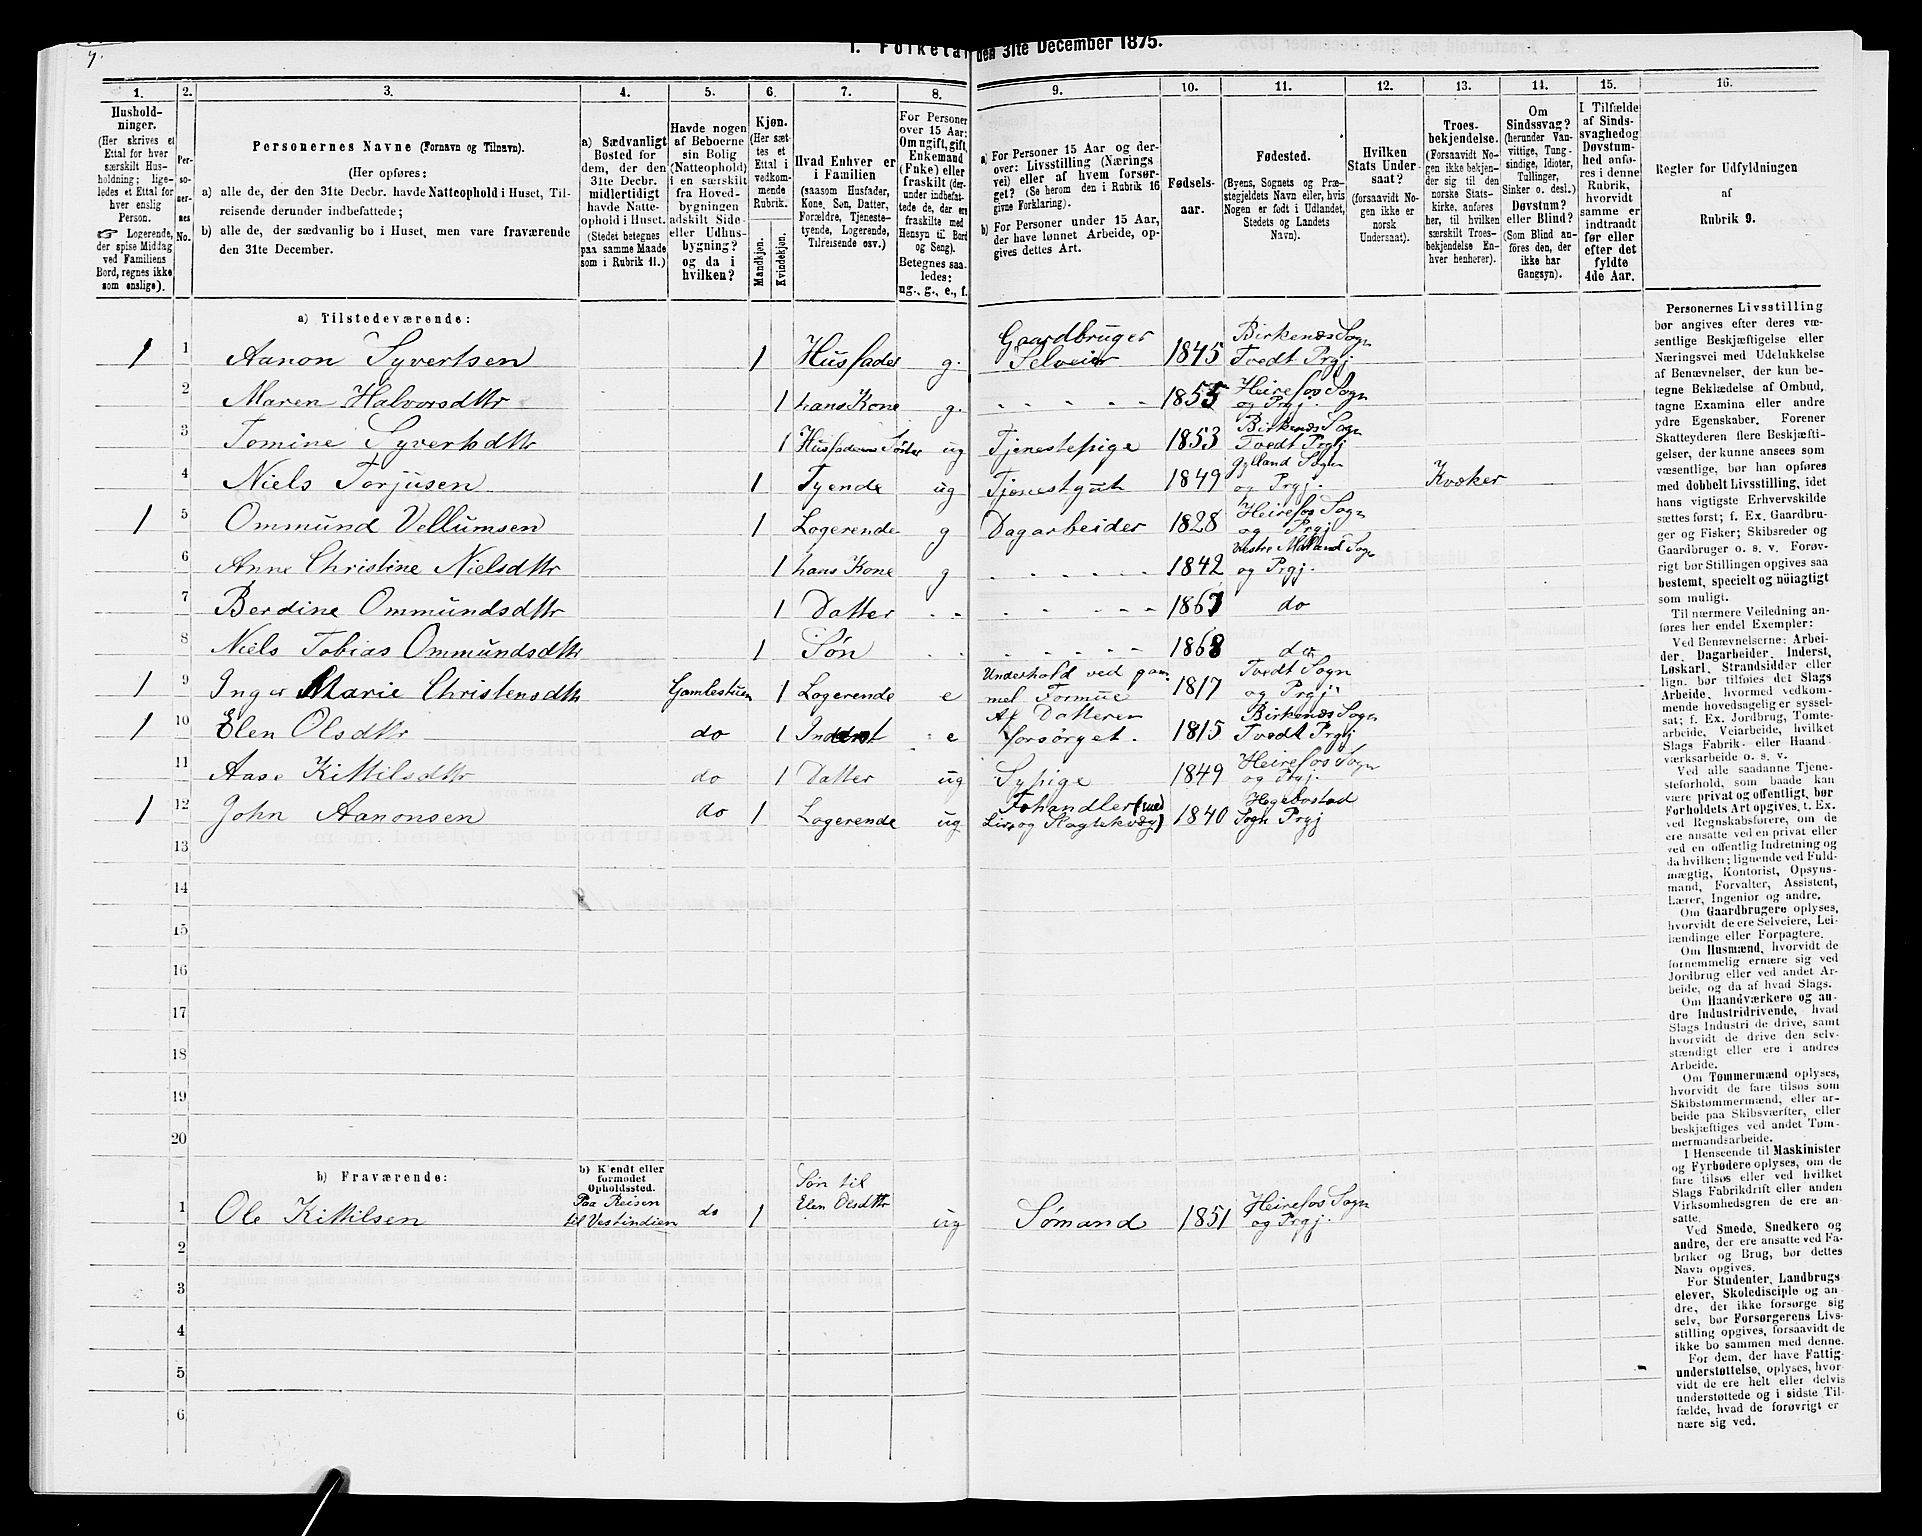 7.
1. Folketal den 31te December 1875.
1. 2. 3. 4. 5. 6. 7. 8. 9. 10. 11. 12. 13. 14. 15. 16.
Hushold-
ninger.
(Her skrives et
Ettal for hver
særskilt Hus-
holdning; lige-
ledes et Ettal for
hver enslig
Person.
☞ Logerende,
der spise Middag
ved Familiens
Bord, regnes ikke
som enslige).
Per-
so-
ner-
nes
No.
Personernes Navne (Fornavn og Tilnavn).
(Her opføres:
a) alle de, der den 31te Decbr. havde Natteophold i Huset, Til-
reisende derunder indbefattede;
b) alle de, der sædvanlig bo i Huset, men vare fraværende
den 31te December.
a) Sædvanligt
Bosted for
dem, der den
31te Decbr.
midlertidigt
havde Natte-
ophold i Huset.
(Stedet betegnes
paa samme Maade
som i Rubrik 11.)
Havde nogen
af Beboerne
sin Bolig
(Natteophold)
i en særskilt
fra Hoved-
bygningen
adskilt Side-
eller Udhus-
bygning?
og da i
hvilken?
Kjøn.
(Her sæt-
tes et
Ettal i
vedkom-
mende
Rubrik.
Mandkjøn.
Kvindekjøn.
Hvad Enhver er
i Familien
(saasom Husfader,
Kone, Søn, Datter,
Forældre, Tjeneste-
tyende, Logerende,
Tilreisende osv.)
For Personer
over 15 Aar:
Om ugift, gift,
Enkemand
(Enke) eller
fraskilt (der-
under indbefat-
tede de, der ere
fraskilte med
Hensyn til Bord
og Seng).
Betegnes saa-
ledes:
ug., g., e., f.
a) For Personer 15 Aar og der-
over: Livsstilling (Nærings
vei) eller af hvem forsør-
get? (Se herom den i Rubrik 16
givne Forklaring).
b) For Personer under 15 Aar,
der have lønnet Arbeide, op-
gives dettes Art.
Fødsels-
aar.
Fødested.
(Byens, Sognets og Præ-
stegjeldets Navn eller, hvis
Nogen er født i Udlandet,
Stedets og Landets
Navn).
Hvilken
Stats Under-
saat?
(forsaavidt No-
gen ikke er
norsk
Undersaat).
Troes-
bekjendelse.
(Forsaavidt No-
gen ikke bekjen-
der sig til den
norske Stats-
kirke. anføres
her, til hvilken
særskilt Troes-
bekjendelse En-
hver henhører).
Om
Sindssvag?
(herunder Van-
vittige, Tung-
sindige, Idioter,
Tullinger,
Sinker o. desl.)
Døvstum?
eller Blind?
(Som Blind an-
føres den, der
ikke har
Gangsyn).
I Tilfælde
af Sinds-
svaghed og
Døvstum-
hed anfø-
res i denne
Rubrik,
hvorvidt
samme er
indtraadt
før eller
efter det
fyldte
4de Aar.
Regler for Udfyldningen
af
Rubrik 9.
a) Tilstedeværende:
1 1 Aanon Syvertsen 1 Husfader g. Gaardbruger Selveier 1845 Birkenæs Sogn Tvedt Prgj
2 Maren Halvorsdttr 1 hans Kone g. - - - - - 1855 Heirefos Sogn og Prgj.
3 Tomine Syvertsdttr 1 Husfaderens Søster ug Tjenestepige 1853 Birkenæs Sogn Tvedt Prgj
4 Niels Torjusen 1 Tyende ug Tjenestgut 1849 Gylland Sogn og Prgj. Kvæker
1 5 Ommund Vellumsen 1 Logerende g Dagarbeider 1828 Heirefos Sogn og Prgj
6 Anne Christine Nielsdttr 1 hans Kone g - - - - - 1842 Vestre Moland Sogn og Prgj.
7 Berdine Ommundsdttr 1 Datter - - - - - - - 1867 do
8 Niels Tobias Ommundsdttr 1 Søn - - - - - - - 1868 do
1 9 Inger Marie Christensdttr Gamlestuen 1 Logerende e Underhold ved gam mel Formue 1817 Tvedt Sogn og Prgj.
1 10 Elen Olsdttr do 1 Inderst e Af Datteren forsørget. 1815 Birkenæs Sogn Tvedt Prgj
11 Aase Kittilsdttr do 1 Datter ug Sypige 1849 Heirefos Sogn og Prgj.
1 12 John Aanonsen do 1 Logerende ug Fehandler (med Livs og Slagtekvæg) 1840 Hegebostad Sogn Prgj
13
14
15
16
17
18
19
20
b) Fraværende:
b) Kjendt eller
formodet
Opholdssted.
1 Ole Kittilsen Paa Reisen til Vestindien do 1 Søn til Elen Olsdttr ug Sømand 1851 Heirefos Sogn og Prgj.
2
3
4
5
6
Personernes Livsstilling
bør angives efter deres væ-
sentlige Beskjæftigelse eller
Næringsvei med Udelukkelse
af Benævnelser, der kun be-
tegne Beklædelse af Ombud,
tagne Examina eller andre
ydre Egenskaber. Forener
Skatteyderen flere Beskjæfti-
gelser, der kunne ansees som
væsentlige, bør han opføres
med dobbelt Livsstilling, idet
hans vigtigste Erhvervskilde
sættes først; f. Ex. Gaardbru-
ger og Fisker; Skibsreder og
Gaardbruger o. s. v. Forøv-
rigt bør Stillingen opgives saa
bestemt, specielt og nøiagtigt
som muligt.
Til nærmere Veiledning an-
føres her endel Exempler:
Ved Benævnelserne: Arbei-
der, Dagarbeider, Inderst,
Løskarl, Strandsidder eller
lign. bør tilføies det Slags
Arbeide, hvormed vedkom-
mende hovedsagelig er syssel-
sat; f. Ex. Jordbrug, Tomte-
arbeide, Veiarbeide, hvilket
Slags Fabrik- eller Haand
værksarbeide o. s. v.
Ved alle saadanne Tjene-
steforhold, som baade kan
være privat og offentligt, bør
Forholdets Art opgives, t. Ex.
ved Regnskabsførere, om de
ere ansatte ved en privat eller
ved en offentlig Indretning og
da hvilken; lignende ved Fuld-
mægtig, Kontorist, Opsyns-
mand, Forvalter, Assistent,
Lærer, Ingeniør og andre.
Om Gaardbrugere oplyses,
hvorvidt de ere Selveiere, Lei-
lændinge eller Forpagtere.
Om Husmænd, hvorvidt de
fornemmelig ernære sig ved
Jordbrug eller ved andet Ar-
beide, og da af hvad Slags.
Om Haandværkere og an-
dre Industridrivende, hvad
Slags Industri de drive, samt
hvorvidt de drive den selv-
stændigt eller ere i andres
Arbeide.
Om Tømmermænd oplyses,
hvorvidt de fare tilsøs som
Skibstømmermænd, eller ar-
beide paa Skibsværfter, eller
beskjæftiges ved andet Tøm-
mermandsarbeide.
I Henseende til Maskinister
og Fyrbødere oplyses, om de
fare tilsøs eller ved hvilket
Slags Fabrikdrift eller anden
Virksomhedsgren de ere an-
satte.
Ved Smede, Snedkere og
andre, der ere ansatte ved Fa-
briker og Brug, bør dettes
Navn opgives.
For Studenter, Landbrugs
elever, Skoledisciple og an-
dre, der ikke forsørge sig
selv, bør Forsørgerens Livs-
stilling opgives, forsaavidt de
ikke bo sammen med denne.
For dem, der have Fattig-
understøttelse, oplyses, hvor-
vidt de ere helt eller delvis
understøttede og i sidste Til-
fælde, hvad de forøvrigt er
nære sig ved.